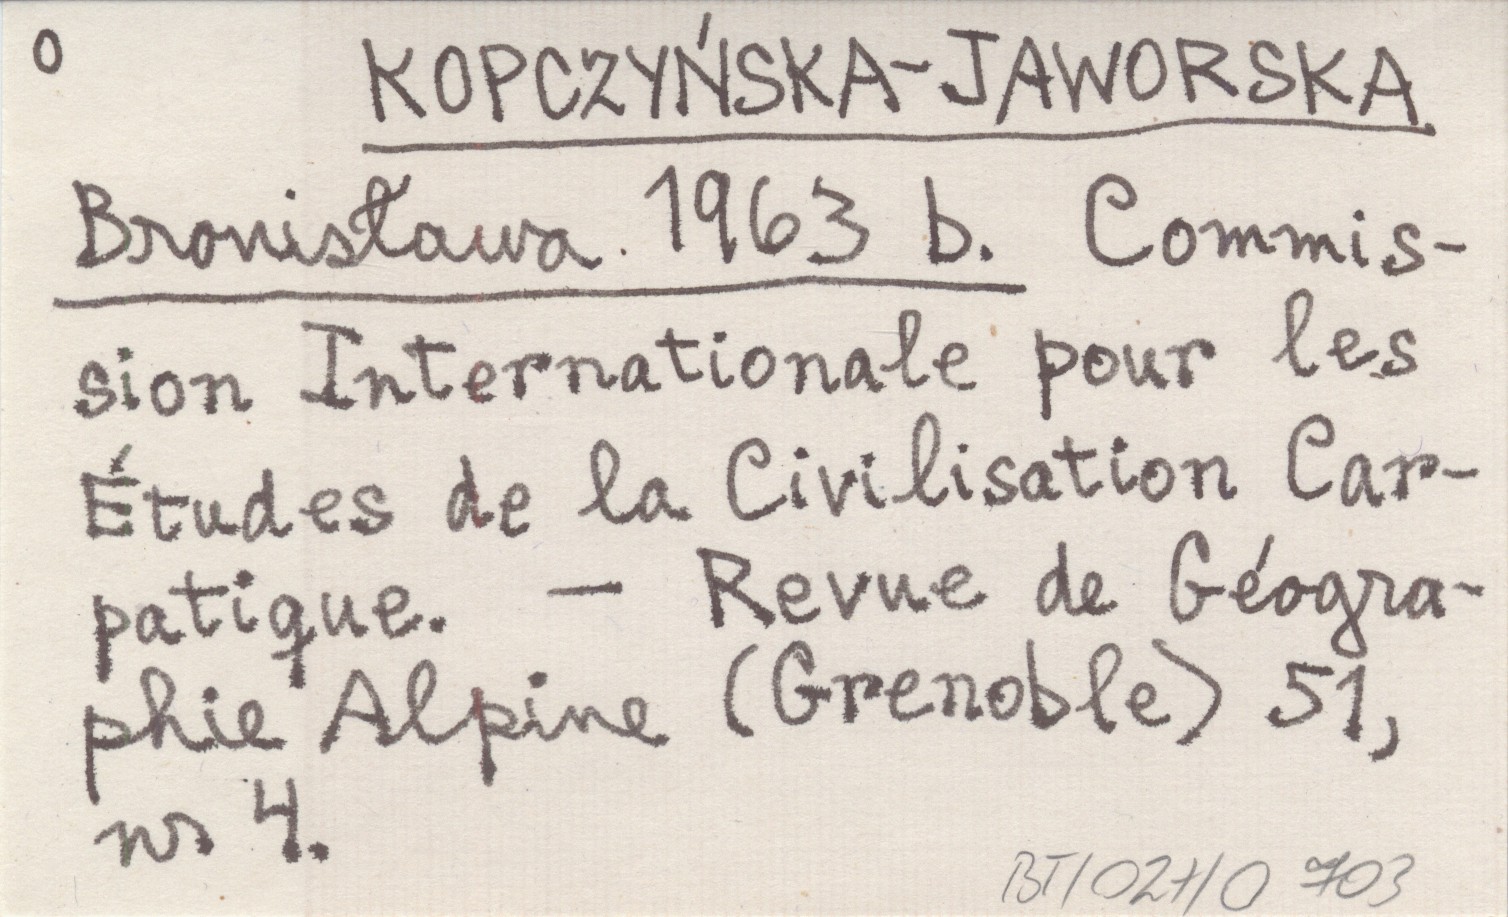 O KOPCZYŃSKA-JAWORSKA
Bronisława. 1963 b. Commis-
sion Internationale pour les
Études de la Civilisation Car-
patique. — Revue de Géogra-
phie Alpine (Grenoble) 51,
nr 4.
BT/027/O 703